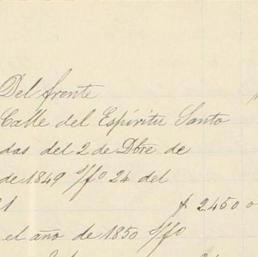 Del frente
Calle del Espíritu Santo
das del 2 de Dbre de
de 1849 f/fo 24 del
$ 2450 0
el año de 1850 f/fo